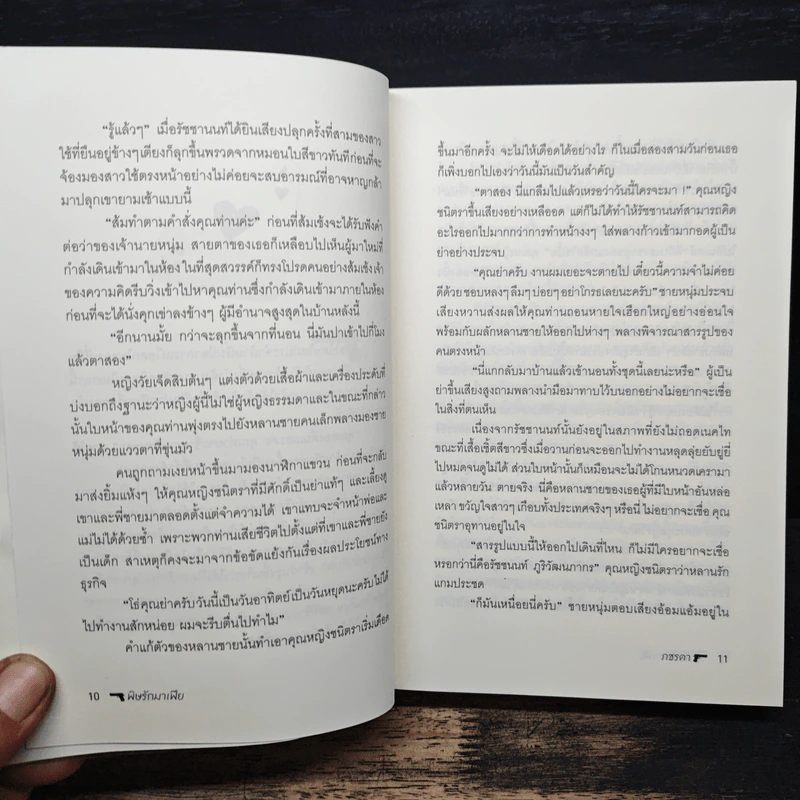 “รู้แล้วๆ” เมื่อรัชชานนท์ได้ยินเสียงปลุกครั้งที่สามของสาว
ใช้ที่ยืนอยู่ข้างๆเตียงก็ลุกขึ้นพรวดจากหมอนใบสีขาวทันทีก่อนที่จะ
จ้องมองสาวใช้ตรงหน้าอย่างไม่ค่อยจะสบอารมณ์ที่อาจหาญกล้า
มาปลุกเขายามเช้าแบบนี้
“ส้มทำตามคำสั่งคุณท่านค่ะ” ก่อนที่ส้มเช้งจะได้รับฟังคำ
ต่อว่าของเจ้านายหนุ่ม สายตาของเธอก็เหลือบไปเห็นผู้มาใหม่ที่
กำลังเดินเข้ามาในห้อง ในที่สุดสวรรค์ก็ทรงโปรดคนอย่างส้มเช้งเจ้า
ของความคิดรีบวิ่งเข้าไปหาคุณท่านซึ่งกำลังเดินเข้ามาภายในห้อง
ก่อนที่จะได้นั่งคุกเข่าลงข้างๆ ผู้มีอำนาจสูงสุดในบ้านหลังนี้
“อีกนานมั้ย กว่าจะลุกขึ้นจากที่นอน นี่มันปาเข้าไปกี่โมง
แล้วตาสอง”
หญิงวัยเจ็ดสิบต้นๆ แต่งตัวด้วยเสื้อผ้าและเครื่องประดับที่
บ่งบอกถึงฐานะว่าหญิงผู้นี้ไม่ใช่ผู้หญิงธรรมดาและในขณะที่กล่าว
นั้นใบหน้าของคุณท่านพุ่งตรงไปยังหลานชายคนเล็กพลางมองชาย
หนุ่มด้วยแววตาที่ขุ่นมัว
คนถูกถามเงยหน้าขึ้นมามองนาฬิกาแขวน ก่อนที่จะกลับ
มาส่งยิ้มแห้งๆ ให้คุณหญิงชนิตราที่มีศักดิ์เป็นย่าแท้ๆ และเลี้ยงดู
เขาและพี่ชายมาตลอดตั้งแต่จำความได้ เขาแทบจะจำหน้าพ่อและ
แม่ไม่ได้ด้วยซ้ำ เพราะพวกท่านเสียชีวิตไปตั้งแต่ที่เขาและพี่ชายยัง
เป็นเด็ก สาเหตุก็คงจะมาจากข้อขัดแย้งกันเรื่องผลประโยชน์ทาง
ธุรกิจ
“โธ่คุณย่าครับวันนี้เป็นวันอาทิตย์เป็นวันหยุดนะครับไม่ได้
ไปทำงานสักหน่อย ผมจะรีบตื่นไปทำไม”
คำแก้ตัวของหลานชายนั้นทำเอาคุณหญิงชนิตราเริ่มเดือด
10 พิษรักมาเฟีย
ขึ้นมาอีกครั้ง จะไม่ให้เดือดได้อย่างไร ก็ในเมื่อสองสามวันก่อนเธอ
ก็เพิ่งบอกไปเองว่าวันนี้มันเป็นวันสำคัญ
“ตาสอง นี่แกลืมไปแล้วเหรอว่าวันนี้ใครจะมา !” คุณหญิง
ชนิตราขึ้นเสียงอย่างเหลืออด แต่ก็ไม่ได้ทำให้รัชชานนท์สามารถคิด
อะไรออกไปมากกว่าการทำหน้างงๆ ใส่พลางก้าวเข้ามากอดผู้เป็น
ย่าอย่างประจบ
“คุณย่าครับ งานผมเยอะจะตายไป เดี๋ยวนี้ความจำไม่ค่อย
ดีด้วย ชอบหลงๆ ลืมๆ บ่อยๆ อย่าโกรธเลยนะครับ” ชายหนุ่มประจบ
เสียงหวานส่งผลให้คุณย่าถอนหายใจเฮือกใหญ่อย่างอ่อนใจ
พร้อมกับผลักหลานชายให้ออกไปห่างๆ พลางพิจารณาสารรูปของ
คนตรงหน้า
“นี่แกกลับมาบ้านแล้วเข้านอนทั้งชุดนี้เลยน่ะหรือ” ผู้เป็น
ย่าขึ้นเสียงสูงถามพลางนำมือมาทาบไว้บนอกอย่างไม่อยากจะเชื่อ
ในสิ่งที่ตนเห็น
เนื่องจากรัชชานนท์นั้นยังอยู่ในสภาพที่ยังไม่ถอดเนคไท
ขณะที่เสื้อเชิ้ตสีขาวซึ่งเมื่อวานก่อนจะออกไปทำงานหลุดลุ่ยยับยู่ยี่
ไปหมดจนดูไม่ได้ ส่วนใบหน้านั้นก็เหมือนจะไม่ได้โกนหนวดเครามา
แล้วหลายวัน ตายจริง นี่คือหลานชายของเธอผู้ที่มีใบหน้าอันหล่อ
เหลา ขวัญใจสาวๆ เกือบทั้งประเทศจริงๆ หรือนี่ ไม่อยากจะเชื่อ คุณ
ชนิตราอุทานอยู่ในใจ
“สารรูปแบบนี้ให้ออกไปเดินที่ไหน ก็ไม่มีใครอยากจะเชื่อ
หรอกว่านี่คือรัชชนนท์ ภูริวัฒนภากร” คุณหญิงชนิตราว่าหลานรัก
แกมประชด
“ก็มันเหนื่อยนี่ครับ” ชายหนุ่มตอบเสียงอ้อมแอ้มอยู่ใน
ภชรดา 11